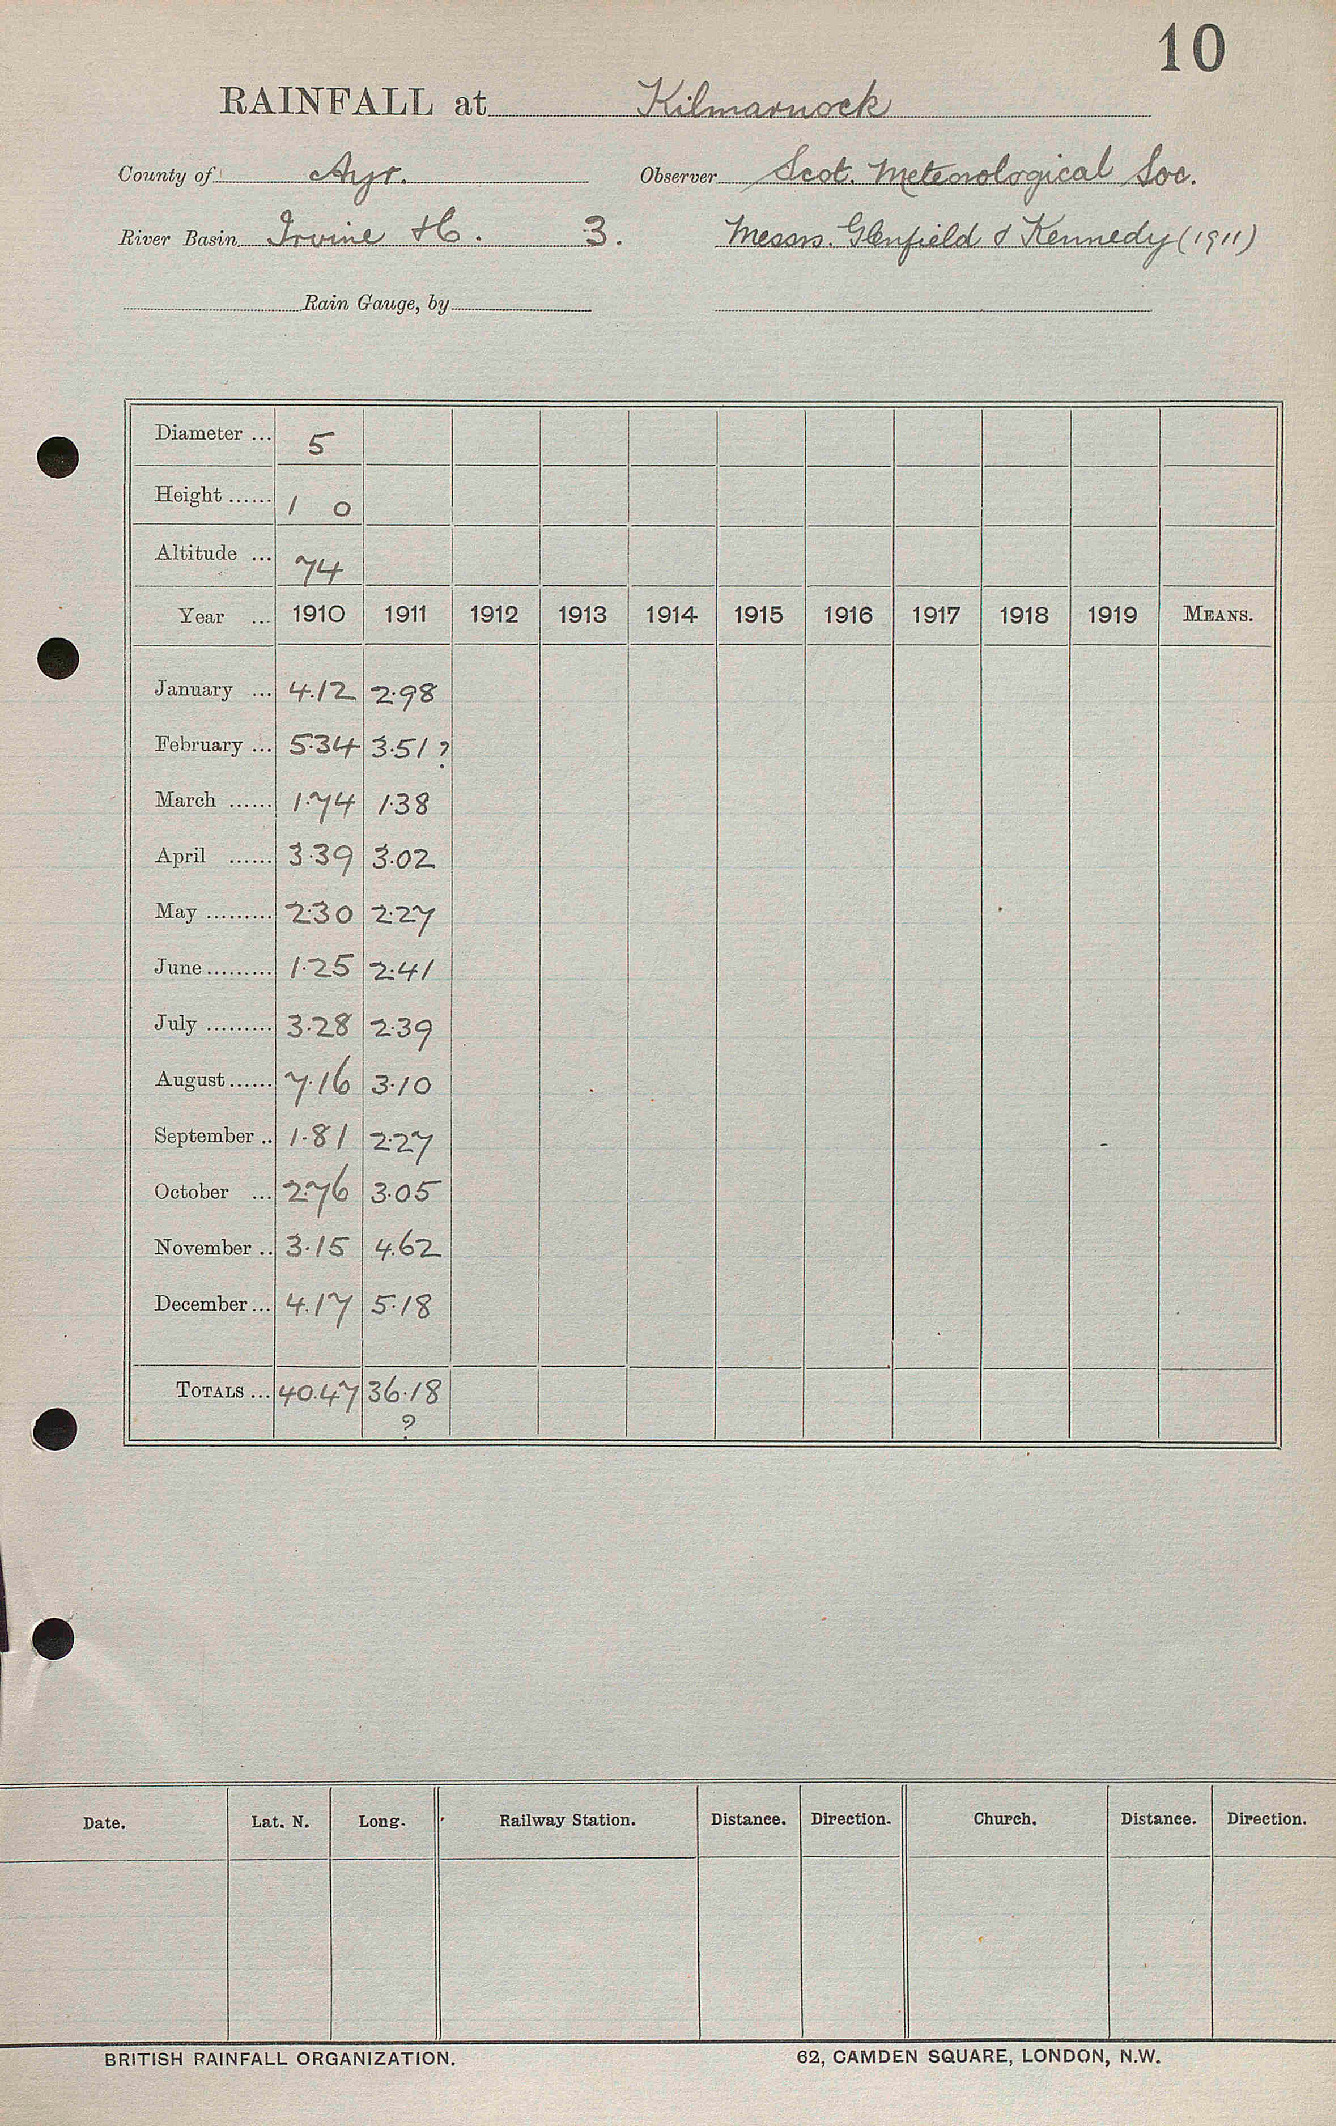 10
RAINFALL at Kilmarnock
County of Ayr. Observer Scot. Meteorological Soc.
River Basin Irvine &c. 3. Messrs. Glenfield & Kennedy (1911)
Rain Gauge, by
Diameter ... 5
Height ...... 1 0
Altitude ... 74
Year ... 1910 1911 1912 1913 1914 1915 1916 1917 1918 1919 MEANS.
January ... 4.12 2.98
February ... 5.34 3.51 ?
March ...... 1.74 1.38
April ...... 3.39 3.02
May ......... 2.30 2.27
June ......... 1.25 2.41
July ......... 3.28 2.39
August ...... 7.16 3.10
September .. 1.81 2.27
October ... 2.76 3.05
November .. 3.15 4.62
December ... 4.17 5.18
TOTALS ... 40.47 36.18
?
Date. Lat. N. Long. Railway Station. Distance. Direction. Church. Distance. Direction.
BRITISH RAINFALL ORGANIZATION. 62, CAMDEN SQUARE, LONDON, N.W.